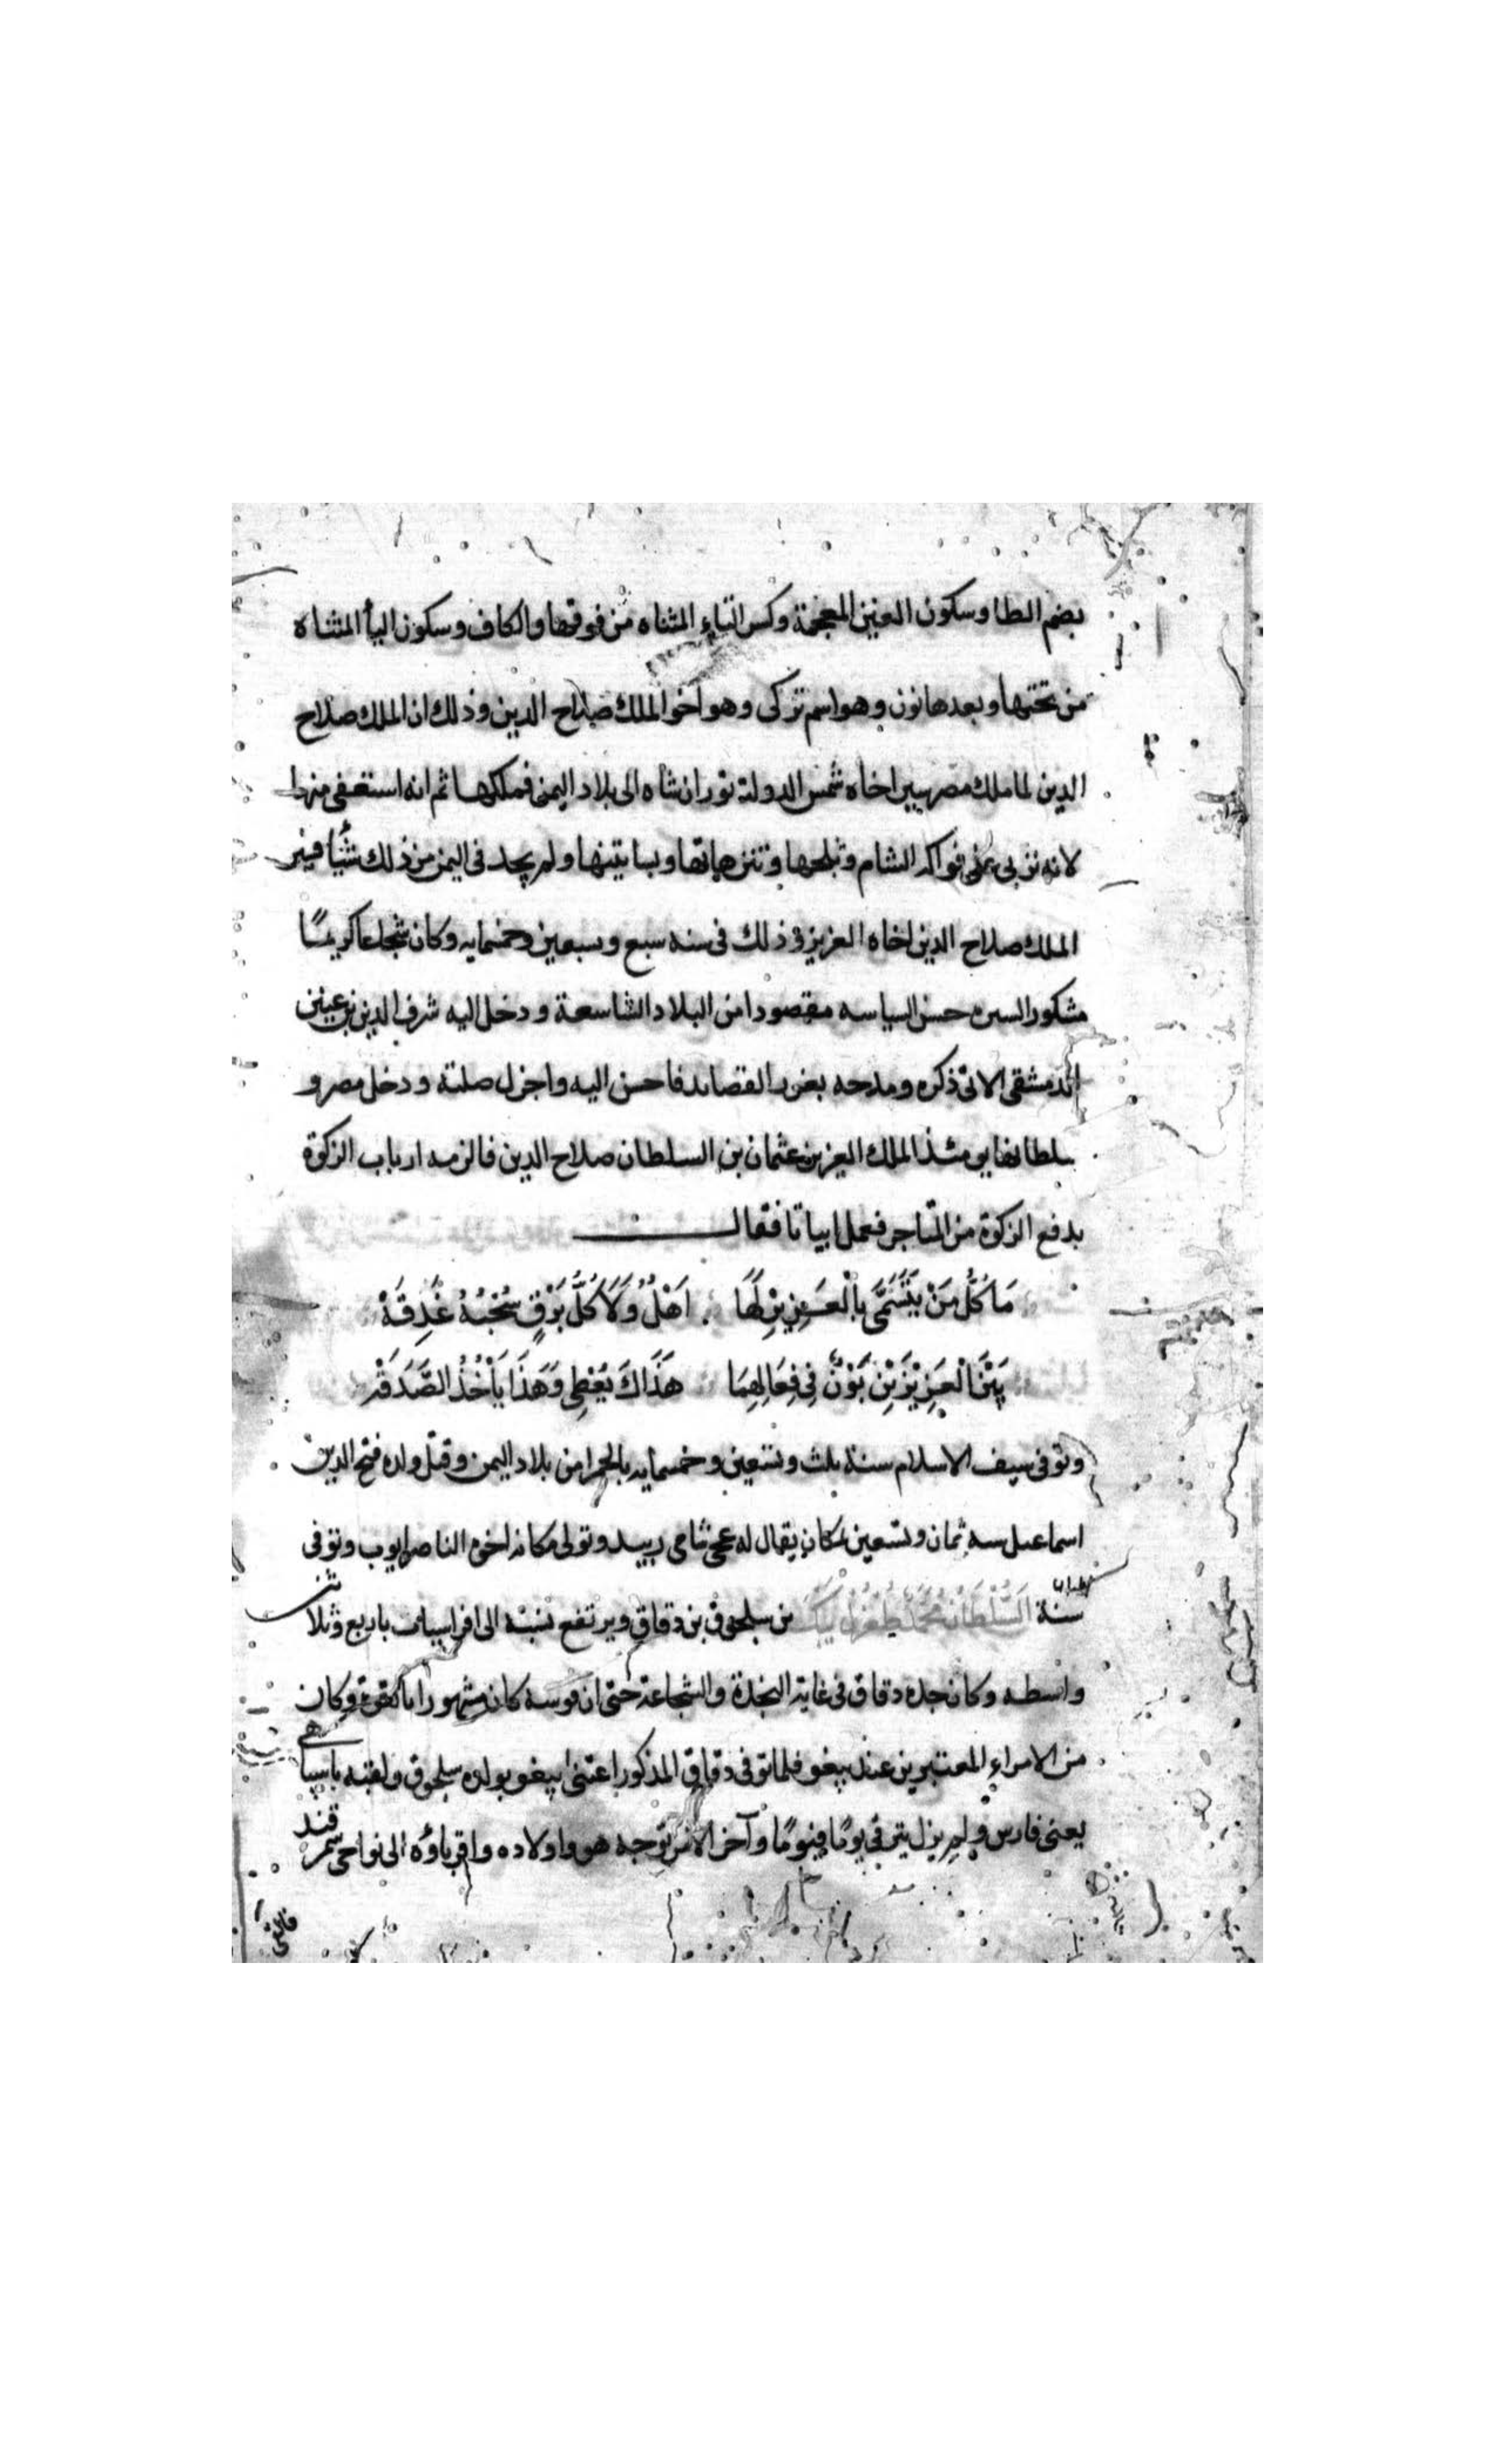 بضم الطا وسكون الغين المعجمة وكسر التاء المثناه من فوقها والكاف وسكون اليأ المثناة
من تحتها وبعدها نون وهو اسم تركى وهو اخو الملك صلاح الدين وذلك ان الملك صلاح
الدين لما ملك مصر سير اخاه شمس الدولة توران شاه الى بلاد اليمن فملكها ثم انه استعفى منها
لانه تربى على فواكه الشام وثلجها وتنزهاتها وبساتينها ولم يجد فى اليمن من ذلك شيأ فسير
الملك صلاح الدين اخاه العزيز وذلك فى سنه سبع وسبعين وخمسمايه وكان شجاعا كريمًا
مشكور السيره حسن السياسه مقصودا من البلاد الشاسعة ودخل اليه شرف الدين بن عنين
الدمشقى الاتى ذكره ومدحه بغرر القصايد فاحسن اليه واجزل صلته ودخل مصر و
سلطانها يومئذ الملك العزيز عثمان بن السلطان صلاح الدين فالزمه ارباب الزكوة
بدفع الزكوة من المتاجر فعمل ابياتا فقال
مَا كُلُّ مَنْ يَتَسَمَّى بِالْعَزِيزِ لَهَا اَهْلٌ وَلَا كُلُّ بَرْقٍ سُحْبُهُ غَدِقَهْ
بَيْنَ الْعَزِيزَيْنِ بَوْنٌ فِى فِعَالِهِمَا هَذَاكَ يُعْطِى وَهَذَا يَأْخُذُ الصَّدَقَهْ
وتوفى سيف الاسلام سنة ثلث وتسعين وخمسمايه بالحمرا من بلاد اليمن وقتل ولده فتح الدين
اسماعيل سنه ثمان وتسعين بمكان يقال له عجى شامى زبيد وتولى مكانه اخوه الناصر ايوب وتوفى
سنة السُّلْطَانُ مُحَمَّد طُغْرُلْ بَيْك بن سلجوق بن دقاق ويرتفع نسبه الى افراسياب باربع وثلاثين
واسطه وكان جده دقاق فى غاية النجدة والشجاعة حتى ان قوسه كان مشهورا بالقوة وكان
من الامراء المعتبرين عند بيغو فلما توفى دقاق المذكور اعتنى بيغو بولده سلجوق ولقبه باسباهى
يعنى فارس ولم يزل يترقى يومًا فيومًا وآخر الامر توجه هو واولاده واقرباؤه الى نواحى سمرقند